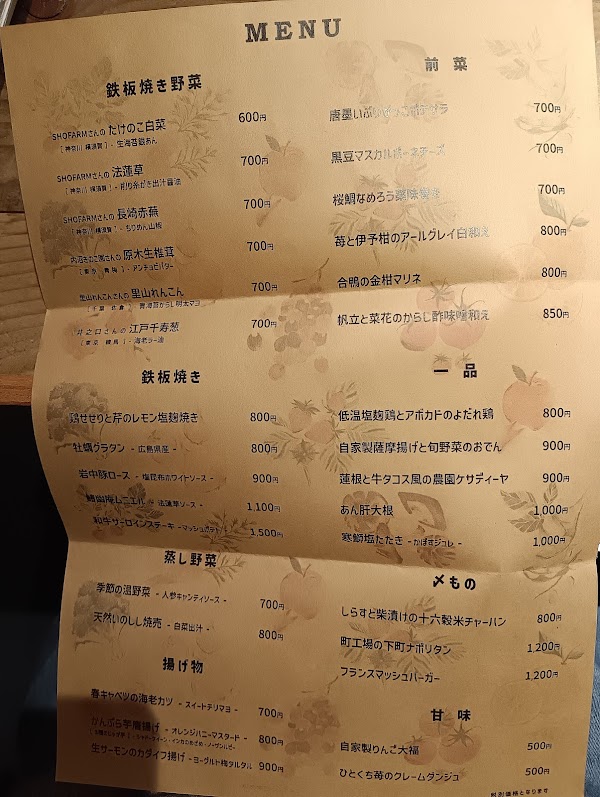 MENU
鉄板焼き野菜
SHOFARMさんの たけのこ白菜 600円
[神奈川 横須賀] - 生海苔餡あん
SHOFARMさんの 法蓮草 700円
[神奈川 横須賀] - 削り糸がき出汁醤油
SHOFARMさんの 長崎赤蕪 700円
[神奈川 横須賀] - ちりめん山椒
原木生椎茸 700円
[東京 青梅] - アンチョビバター
里山れんこんさんの 里山れんこん 700円
[千葉 佐倉] 青海苔からし明太マヨ
井之口さんの 江戸千寿葱 700円
[東京 練馬] - 海老ラー油
鉄板焼き
鶏せせりと芹のレモン塩麹焼き 800円
牡蠣グラタン - 広島県産 - 800円
岩中豚ロース - 塩昆布ホワイトソース - 900円
ムニエル - 法蓮草ソース - 1,100円
和牛サーロインステーキ -マッシュポテト- 1,500円
蒸し野菜
季節の温野菜 - 人参キャンディソース - 700円
天然いのしし焼売 - 白菜出汁 - 800円
揚げ物
春キャベツの海老カツ - スイートチリマヨ - 700円
かんぷら芋唐揚げ - オレンジハニーマスタード - 800円
生サーモンのカダイフ揚げ -ヨーグルト梅タルタル 900円
前菜
唐墨いぶりがっこポテサラ 700円
黒豆マスカルポーネチーズ 700円
桜鯛なめろう 700円
苺と伊予柑のアールグレイ白和え 800円
合鴨の金柑マリネ 800円
帆立と菜花のからし酢味噌和え 850円
一品
低温塩麹鶏とアボカドのよだれ鶏 800円
自家製薩摩揚げと旬野菜のおでん 900円
蓮根と牛タコス風の農園ケサディーヤ 900円
あん肝大根 1,000円
寒鰤塩たたき - かぼすジュレ - 1,000円
〆もの
しらすと柴漬けの十六穀米チャーハン 800円
町工場の下町ナポリタン 1,200円
フランスマッシュバーガー 1,200円
甘味
自家製りんご大福 500円
ひとくち苺のクレームダンジュ 500円
税別価格となります